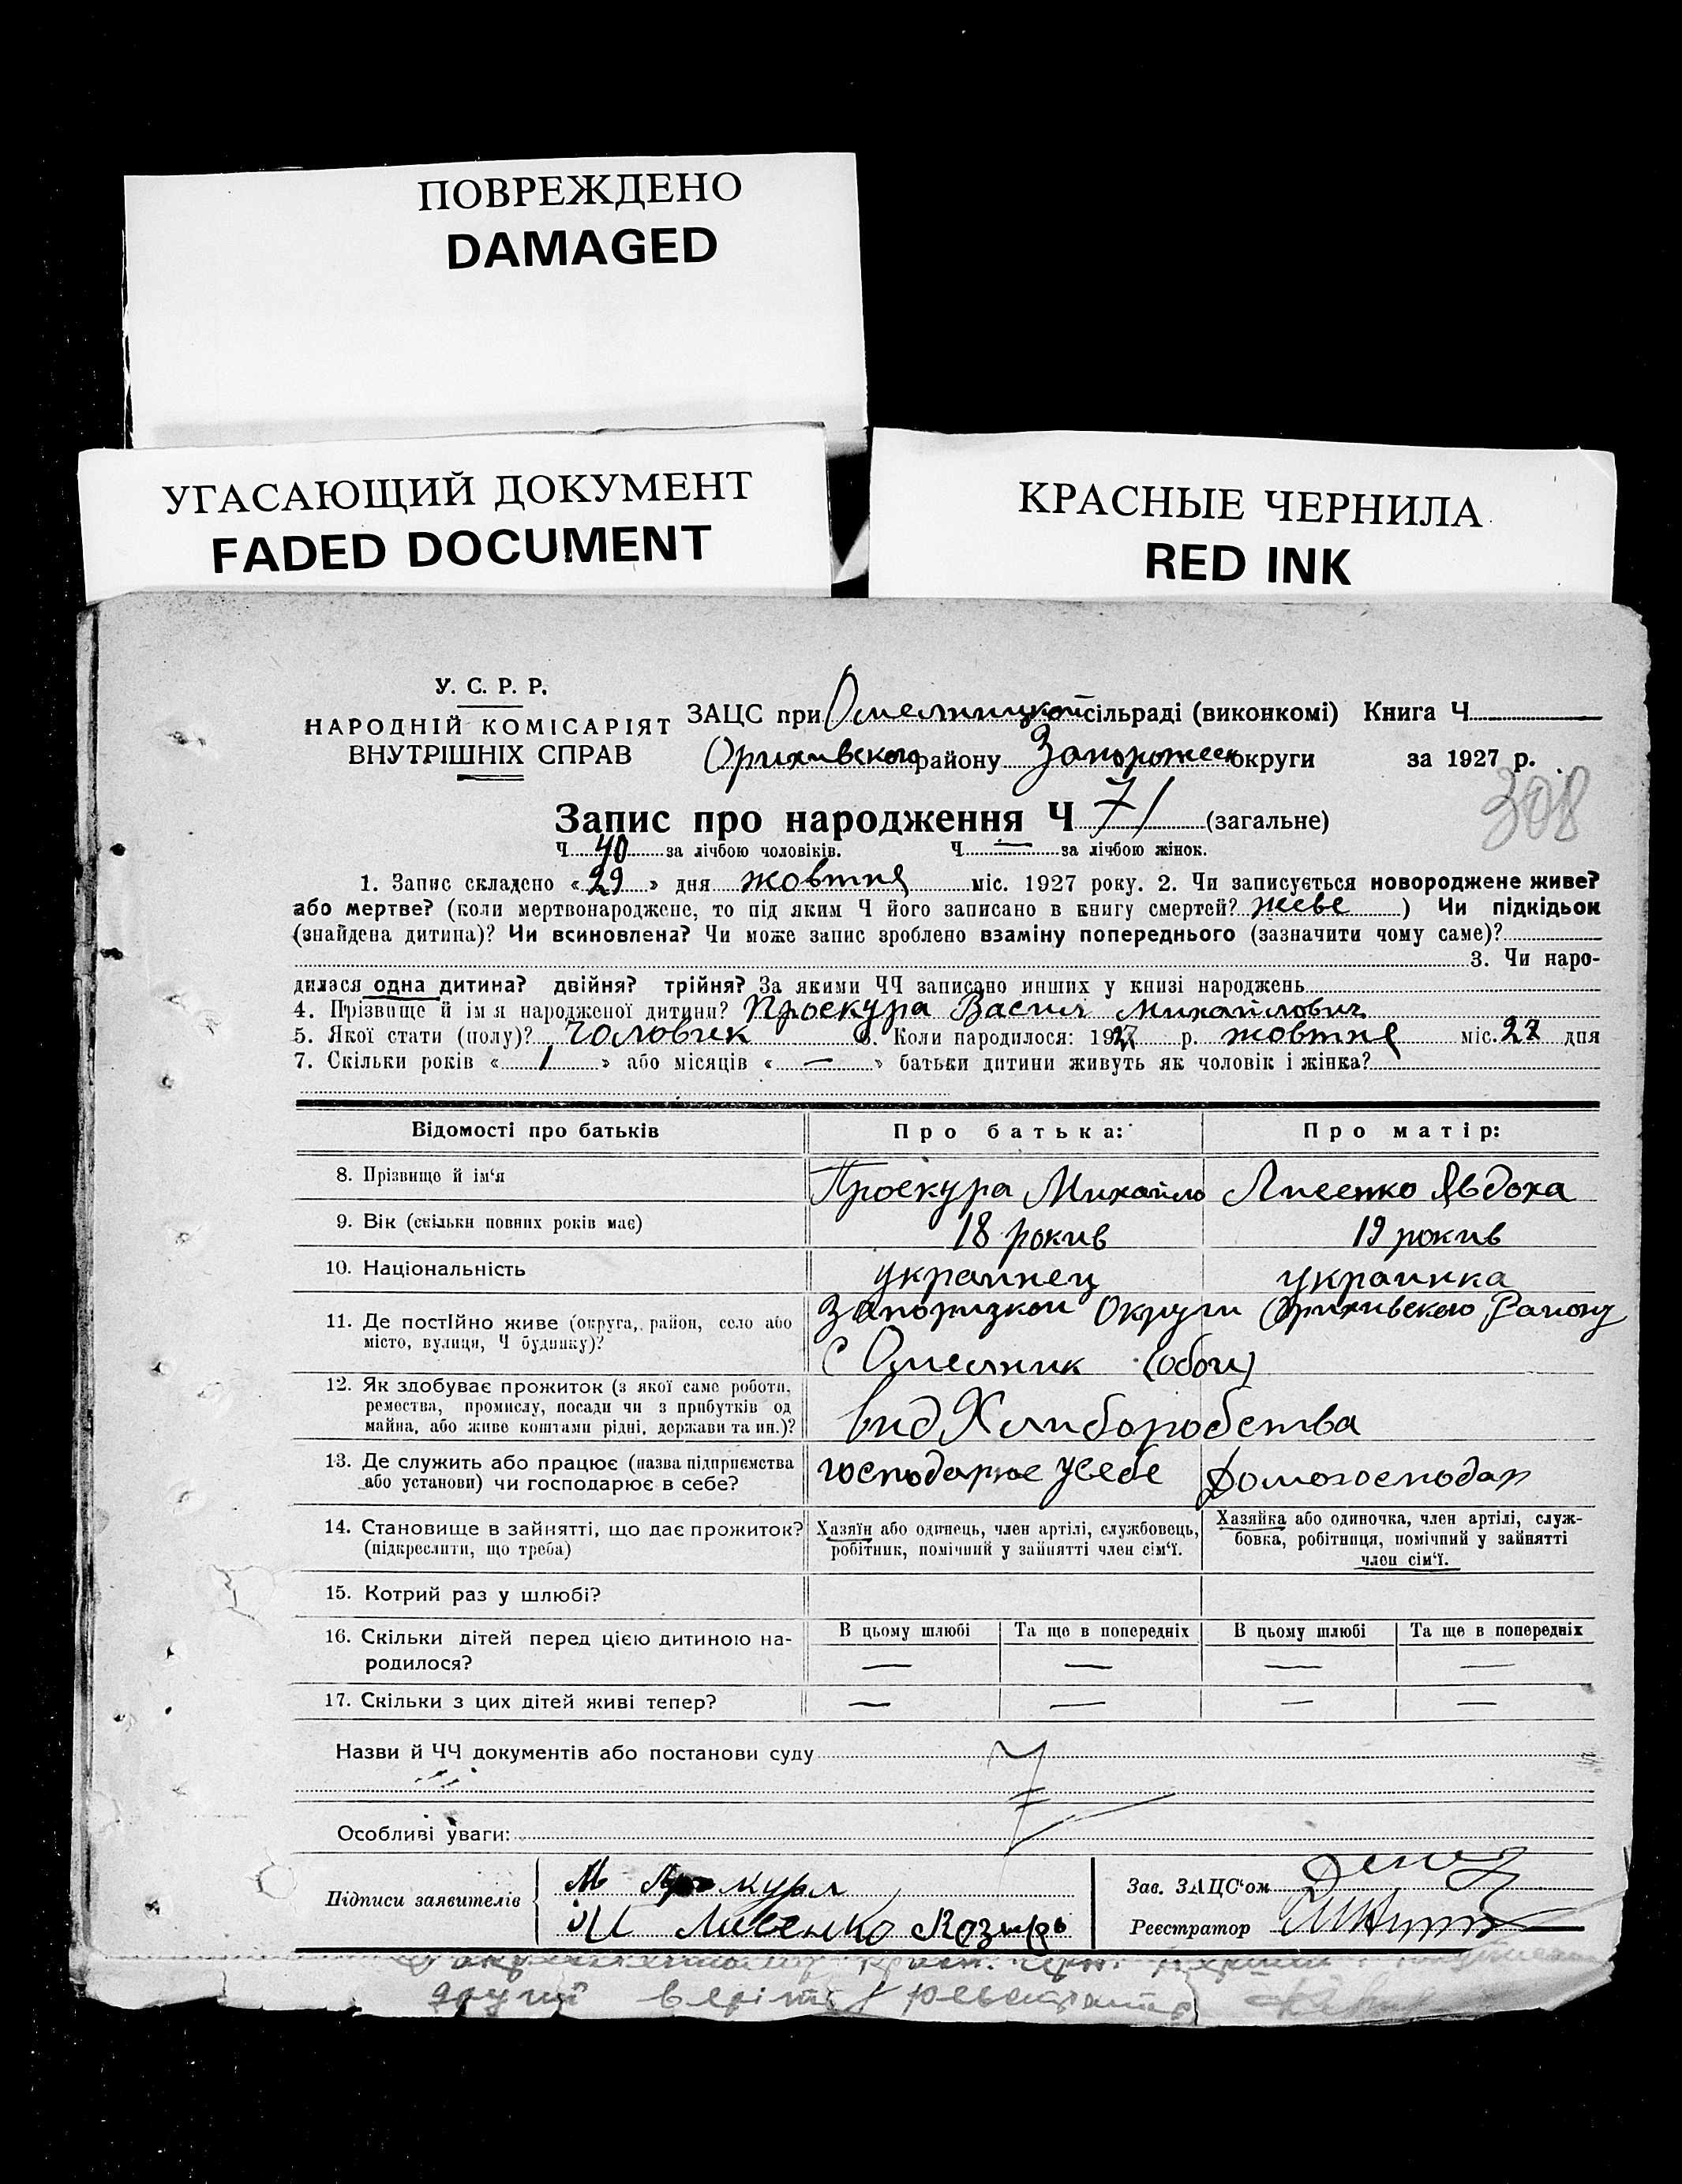 ПОВРЕЖДЕНО
DAMAGED
УГАСАЮЩИЙ ДОКУМЕНТ
FADED DOCUMENT
КРАСНЫЕ ЧЕРНИЛА
RED INK
У. С. Р. Р.
НАРОДНІЙ КОМІСАРІЯТ
ВНУТРІШНІХ СПРАВ
ЗАЦС при Омелницкой сільраді (виконкомі) Книга Ч
Орихивского району Запорожск округи за 1927 р.
308
Запис про народження Ч 71 (загальне)
Ч 40 за лічбою чоловіків. Ч — за лічбою жінок.
1. Запис складено « 29 » дня жовтня міс. 1927 року. 2. Чи записується новороджене живе?
або мертве? (коли мертвонароджене, то під яким Ч його записано в книгу смертей? живе ) Чи підкідьок
(знайдена дитина)? Чи всиновлена? Чи може запис зроблено взаміну попереднього (зазначити чому саме)?
3. Чи наро-
дилася одна дитина? двійня? трійня? За якими ЧЧ записано инших у книзі народжень
4. Прізвище й ім'я народженої дитини? Проскура Васил Михайлович
5. Якої стати (полу)? Чоловик 6. Коли народилося: 1927 р. жовтня міс. 27 дня
7. Скільки років « 1 » або місяців « — » батьки дитини живуть як чоловік і жінка?
Відомості про батьків Про батька: Про матір:
8. Прізвище й ім'я Проскура Михайло Лисенко Явдоха
9. Вік (скільки повних років має) 18 рокив 19 рокив
10. Національність украинец украинка
11. Де постійно живе (округа, район, село або
місто, вулиця, Ч будинку)?
Запоризкои Округи Орихивского Району
с Омелник (обои)
12. Як здобуває прожиток (з якої саме роботи,
ремества, промислу, посади чи з прибутків од
майна, або живе коштами рідні, держави та ин.)?
вид Хлиборобства
13. Де служить або працює (назва підприємства
або установи) чи господарює в себе?
господарює усебе домогосподар
14. Становище в зайнятті, що дає прожиток?
(підкреслити, що треба)
Хазяїн або одинець, член артілі, службовець,
робітник, помічний у зайнятті член сім'ї.
Хазяйка або одиночка, член артілі, служ-
бовка, робітниця, помічний у зайнятті
член сім'ї.
15. Котрий раз у шлюбі?
16. Скільки дітей перед цією дитиною на-
родилося?
В цьому шлюбі Та ще в попередніх В цьому шлюбі Та ще в попередніх
— — — —
17. Скільки з цих дітей живі тепер? — — — —
Назви й ЧЧ документів або постанови суду
Особливі уваги:
Підписи заявителів
М Проскура
Лисенко Козирь
Зав. ЗАЦС'ом
Реєстратор
другій вірити